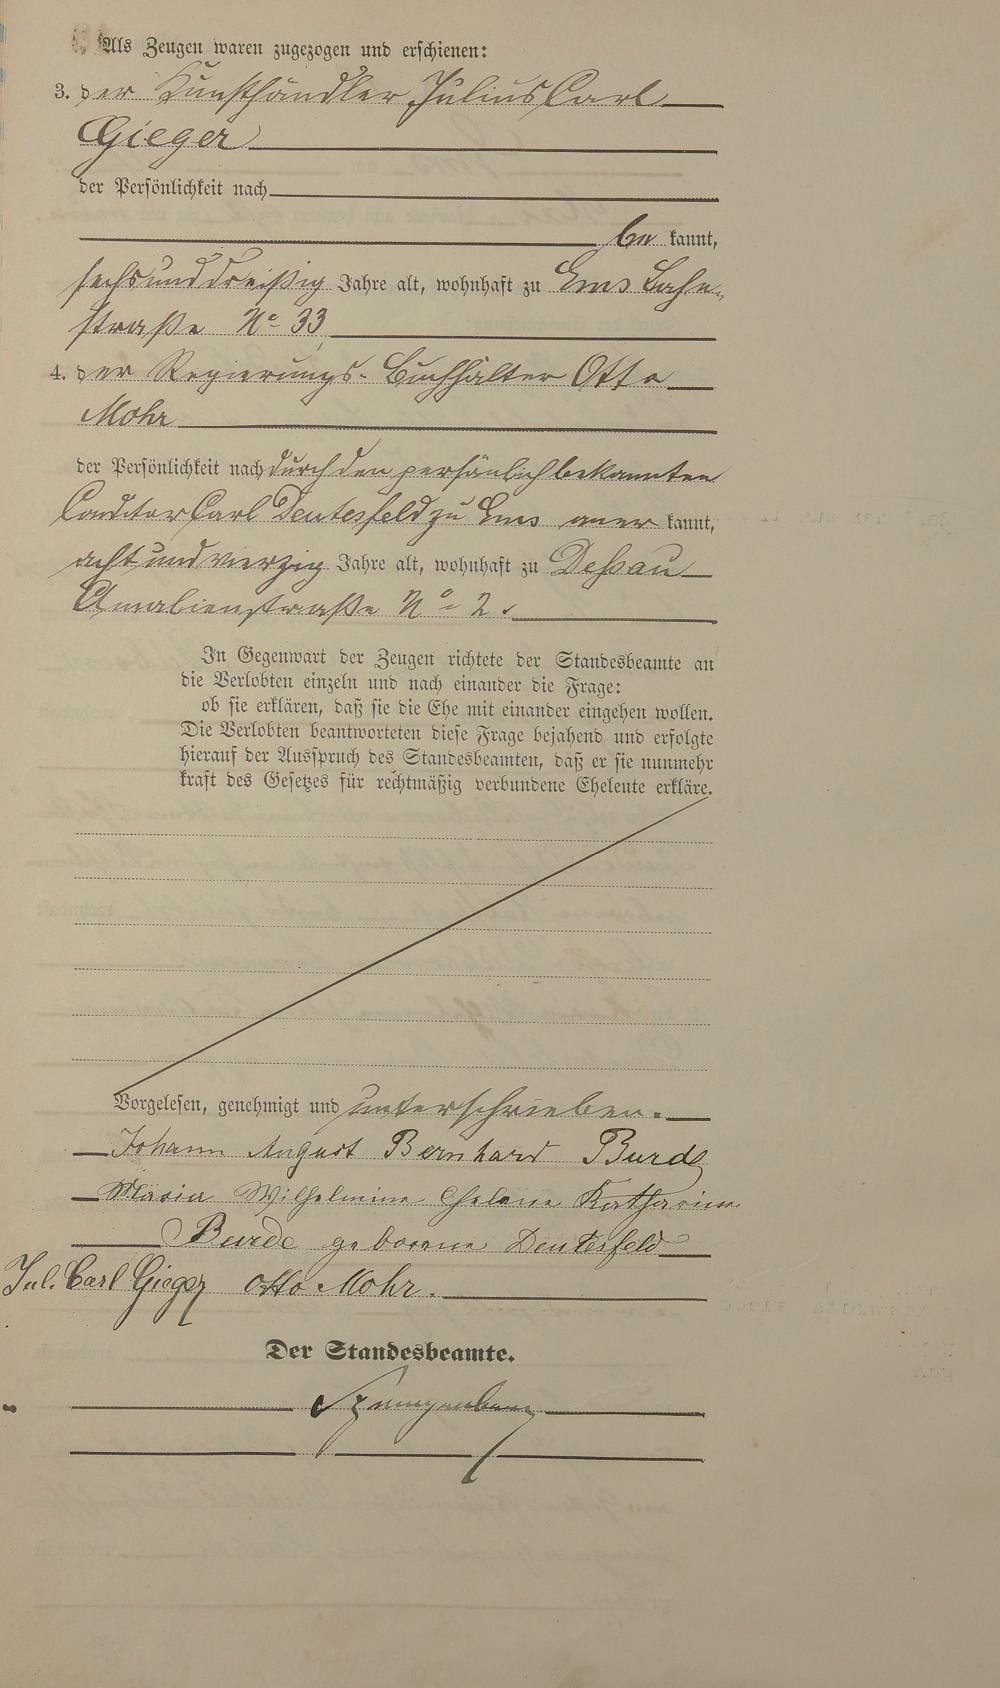 Als Zeugen waren zugezogen und erschienen:
3. der Kunsthändler Julius Carl
Gieger
der Persönlichkeit nach
be kannt,
sechsunddreißig Jahre alt, wohnhaft zu Ems Lahn-
straße No 33
4. der Regierungs-Buchhalter Otto
Mohr
der Persönlichkeit nach durch den persönlich bekannten
Conditor Carl Deutesfeld zu Ems aner kannt,
acht und vierzig Jahre alt, wohnhaft zu Deßau
Amalienstraße No 2.
In Gegenwart der Zeugen richtete der Standesbeamte an
die Verlobten einzeln und nach einander die Frage:
ob sie erklären, daß sie die Ehe mit einander eingehen wollen.
Die Verlobten beantworteten diese Frage bejahend und erfolgte
hierauf der Ausspruch des Standesbeamten, daß er sie nunmehr
kraft des Gesetzes für rechtmäßig verbundene Eheleute erkläre.
Vorgelesen, genehmigt und unterschrieben.
Johann August Bernhard Burde
Maria Wilhelmine Helene Katharina
Burde geborene Deutesfeld
Jul. Carl Gieger Otto Mohr.
Der Standesbeamte.